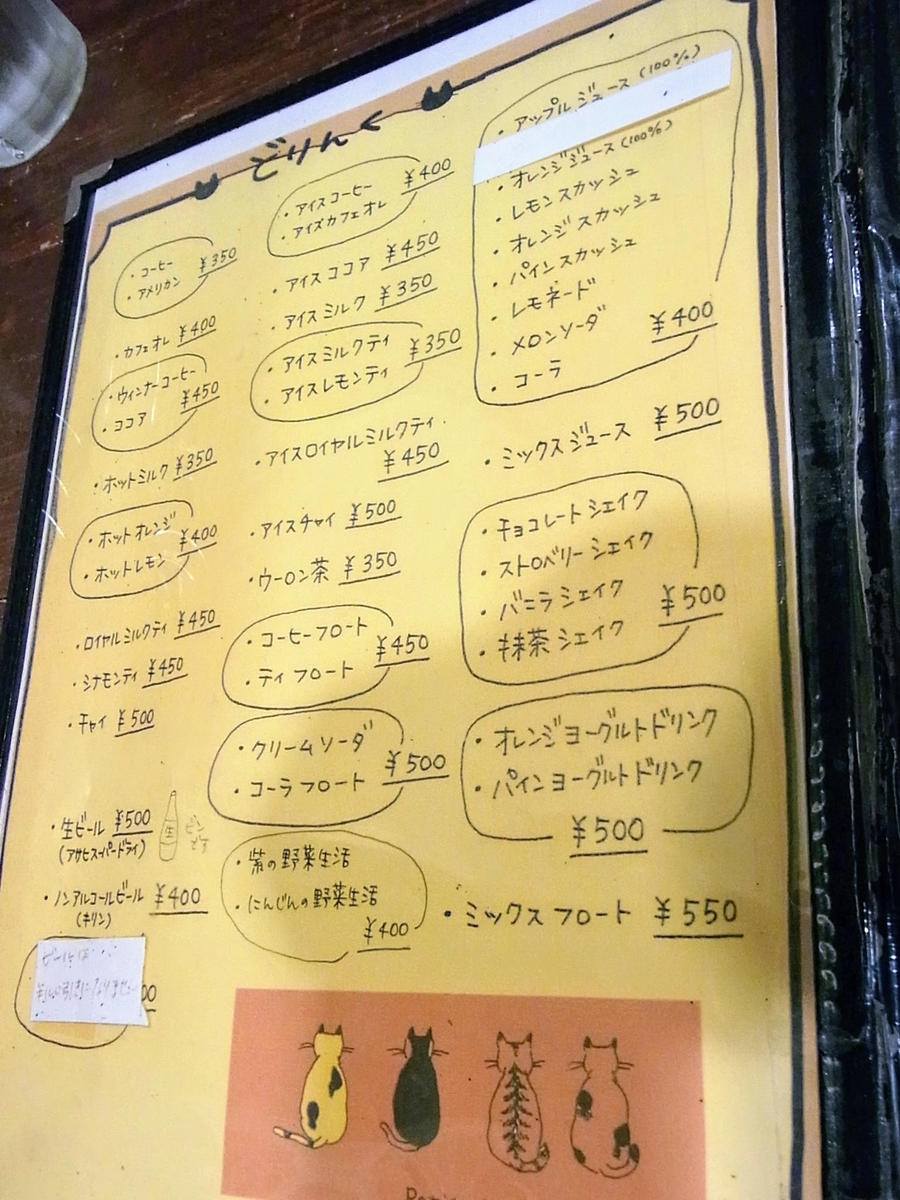 どりんく
・コーヒー
・アメリカン ¥350
・カフェオレ ¥400
・ウィンナーコーヒー
・ココア ¥450
・ホットミルク ¥350
・ホットオレンジ
・ホットレモン ¥400
・ロイヤルミルクティ ¥450
・シナモンティ ¥450
・チャイ ¥500
・生ビール ¥500
(アサヒスーパードライ)
生
・ノンアルコールビール ¥400
(キリン)
ビールは
00
・アイスコーヒー ¥400
・アイスカフェオレ
・アイスココア ¥450
・アイスミルク ¥350
・アイスミルクティ ¥350
・アイスレモンティ
・アイスロイヤルミルクティ
¥450
・アイスチャイ ¥500
・ウーロン茶 ¥350
・コーヒーフロート
・ティフロート ¥450
・クリームソーダ
・コーラフロート ¥500
・紫の野菜生活
・にんじんの野菜生活
¥400
・アップルジュース(100%)
・オレンジジュース(100%)
・レモンスカッシュ
・オレンジスカッシュ
・パインスカッシュ
・レモネード
・メロンソーダ ¥400
・コーラ
・ミックスジュース ¥500
・チョコレートシェイク
・ストロベリーシェイク
・バニラシェイク ¥500
・抹茶シェイク
・オレンジヨーグルトドリンク
・パインヨーグルトドリンク
¥500
・ミックスフロート ¥550